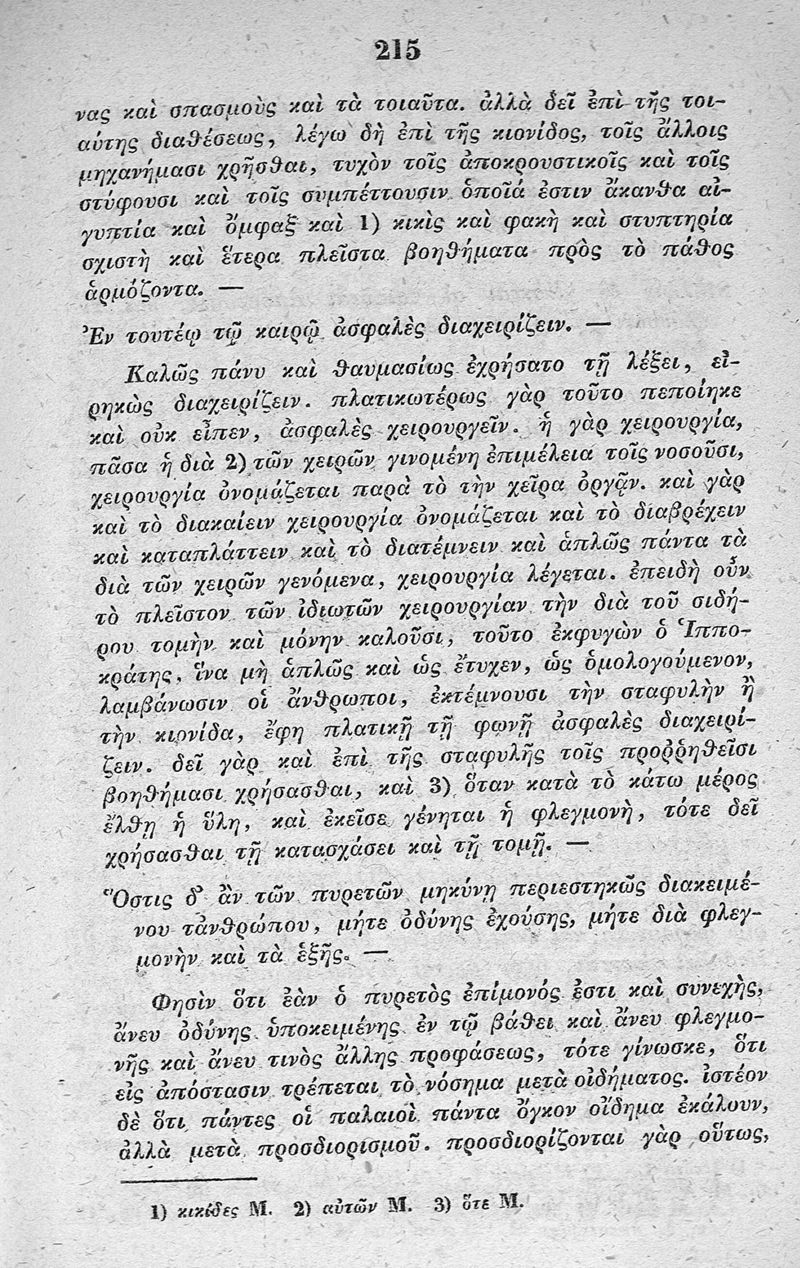 215
νας καὶ σπασμοὺς καὶ τὰ τοιαῦτα. ἀλλὰ δεῖ ἐπὶ τῆς τοι-
αύτης διαθέσεως, λέγω δὴ ἐπὶ τῆς κιονίδος, τοῖς ἄλλοις
μηχανήμασι χρῆσθαι, τυχὸν τοῖς ἀποκρουστικοῖς καὶ τοῖς
στύφουσι καὶ τοῖς συμπέττουσιν ὁποῖά ἐστιν ἄκανθα αἰ-
γυπτία καὶ ὄμφαξ καὶ 1) κικὶς καὶ φακὴ καὶ στυπτηρία
σχιστὴ καὶ ἕτερα πλεῖστα βοηθήματα πρὸς τὸ πάθος
ἁρμόζοντα. —
Ἐν τουτέῳ τῷ καιρῷ ἀσφαλὲς διαχειρίζειν. —
Καλῶς πάνυ καὶ θαυμασίως ἐχρήσατο τῇ λέξει, εἰ-
ρηκὼς διαχειρίζειν. πλατικωτέρως γὰρ τοῦτο πεποίηκε
καὶ οὐκ εἶπεν, ἀσφαλὲς χειρουργεῖν. ἡ γὰρ χειρουργία,
πᾶσα ἡ διὰ 2) τῶν χειρῶν γινομένη ἐπιμέλεια τοῖς νοσοῦσι,
χειρουργία ὀνομάζεται παρὰ τὸ τὴν χεῖρα ὀργᾷν. καὶ γὰρ
καὶ τὸ διακαίειν χειρουργία ὀνομάζεται καὶ τὸ διαβρέχειν
καὶ καταπλάττειν καὶ τὸ διατέμνειν καὶ ἁπλῶς πάντα τὰ
διὰ τῶν χειρῶν γενόμενα, χειρουργία λέγεται. ἐπειδὴ οὖν
τὸ πλεῖστον τῶν ἰδιωτῶν χειρουργίαν τὴν διὰ τοῦ σιδή-
ρου τομὴν καὶ μόνην καλοῦσι, τοῦτο ἐκφυγὼν ὁ Ἱππο-
κράτης, ἵνα μὴ ἁπλῶς καὶ ὡς ἔτυχεν, ὡς ὁμολογούμενον,
λαμβάνωσιν οἱ ἄνθρωποι, ἐκτέμνουσι τὴν σταφυλὴν ἢ
τὴν κιονίδα, ἔφη πλατικῇ τῇ φωνῇ ἀσφαλὲς διαχειρί-
ζειν. δεῖ γὰρ καὶ ἐπὶ τῆς σταφυλῆς τοῖς προῤῥηθεῖσι
βοηθήμασι χρήσασθαι, καὶ 3) ὅταν κατὰ τὸ κάτω μέρος
ἔλθῃ ἡ ὕλη, καὶ ἐκεῖσε γένηται ἡ φλεγμονὴ, τότε δεῖ
χρήσασθαι τῇ κατασχάσει καὶ τῇ τομῇ. —
Ὅστις δ' ἂν τῶν πυρετῶν μηκύνῃ περιεστηκῶς διακειμέ-
νου τἀνθρώπου, μήτε ὀδύνης ἐχούσης, μήτε διὰ φλεγ-
μονὴν καὶ τὰ ἑξῆς. —
Φησὶν ὅτι ἐὰν ὁ πυρετὸς ἐπίμονός ἐστι καὶ συνεχὴς,
ἄνευ ὀδύνης ὑποκειμένης ἐν τῷ βάθει καὶ ἄνευ φλεγμο-
νῆς καὶ ἄνευ τινὸς ἄλλης προφάσεως, τότε γίνωσκε, ὅτι
εἰς ἀπόστασιν τρέπεται τὸ νόσημα μετὰ οἰδήματος. ἰστέον
δὲ ὅτι πάντες οἱ παλαιοὶ πάντα ὄγκον οἴδημα ἐκάλουν,
ἀλλὰ μετὰ προσδιορισμοῦ. προσδιορίζονται γὰρ οὕτως,
1) κικίδες M. 2) αὐτῶν M. 3) ὅτε M.